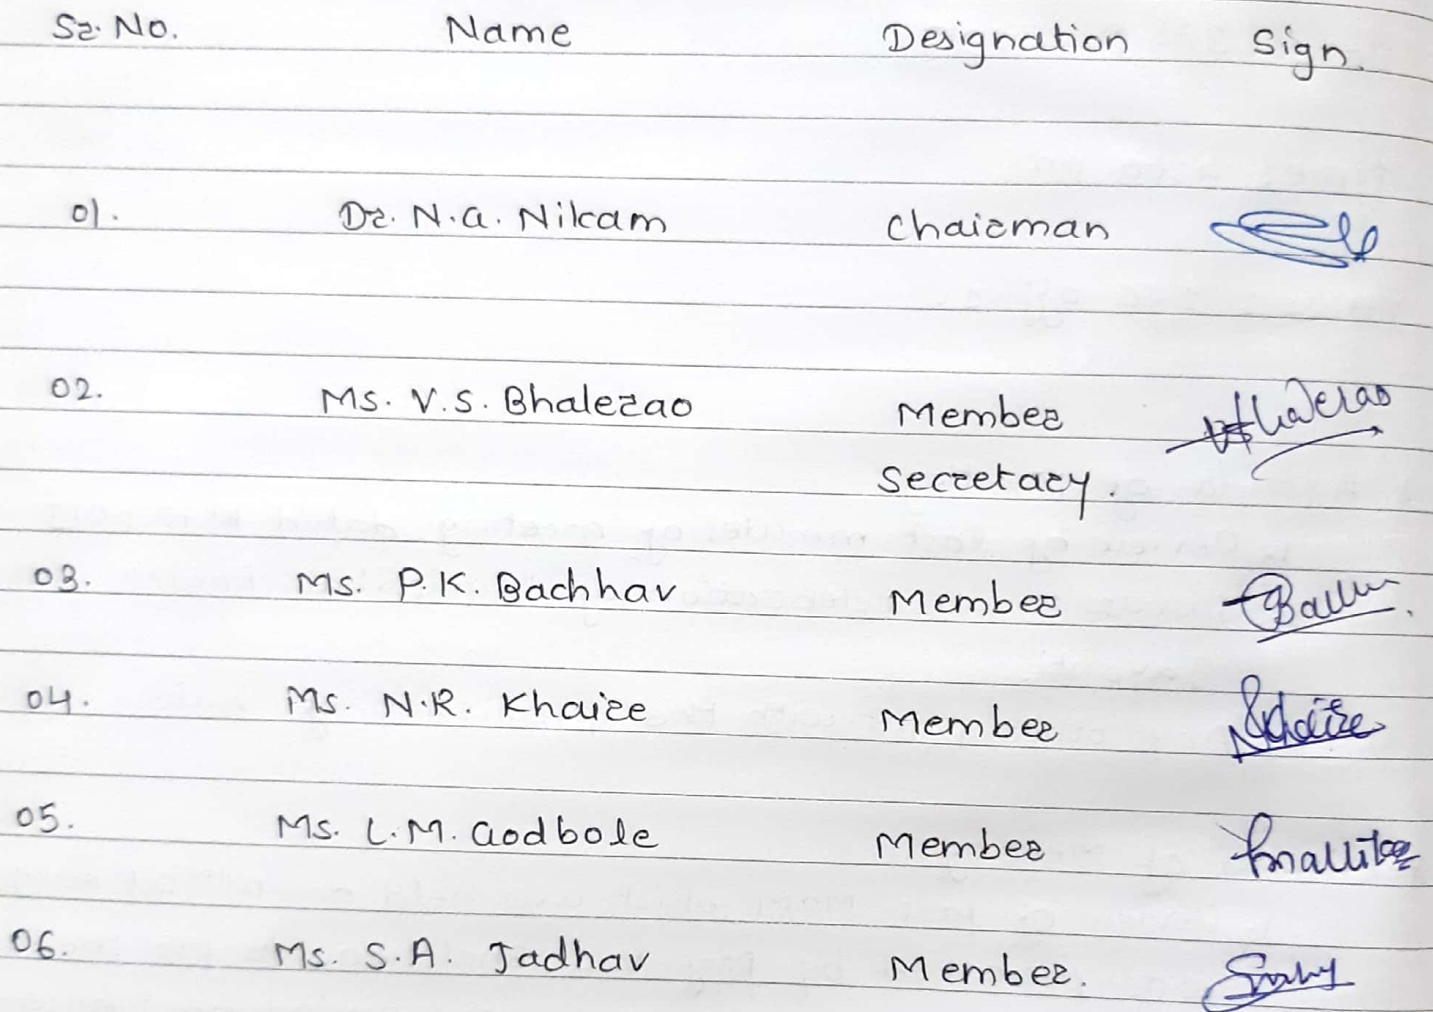 Sr. No. Name Designation Sign.
01. Dr. N.A. Nikam Chairman
02. Ms. V.S. Bhalerao Member
Secretary.
03. Ms. P.K. Bachhav Member
04. Ms. N.R. Khaire Member
05. Ms. L.M. Godbole Member
06. Ms. S.A. Jadhav Member.